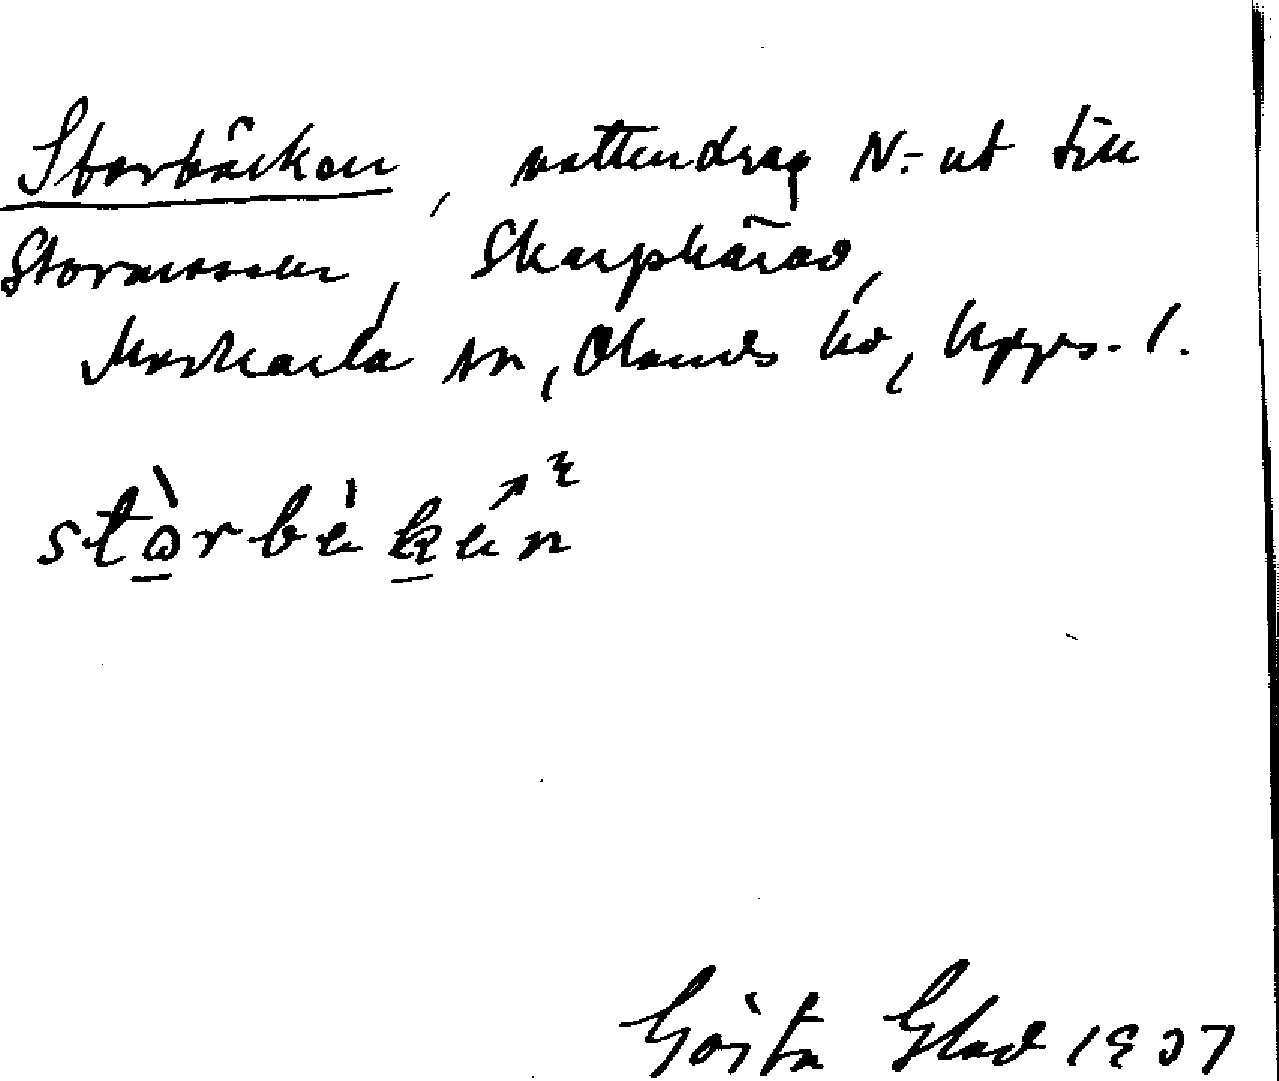 Storbäcken, vattendrag N.-ut till
Stormossen, Skarphärad,
Morkarla sn, Olands hd, Upps. l.
stòrbèkén
Gösta Glad 1937